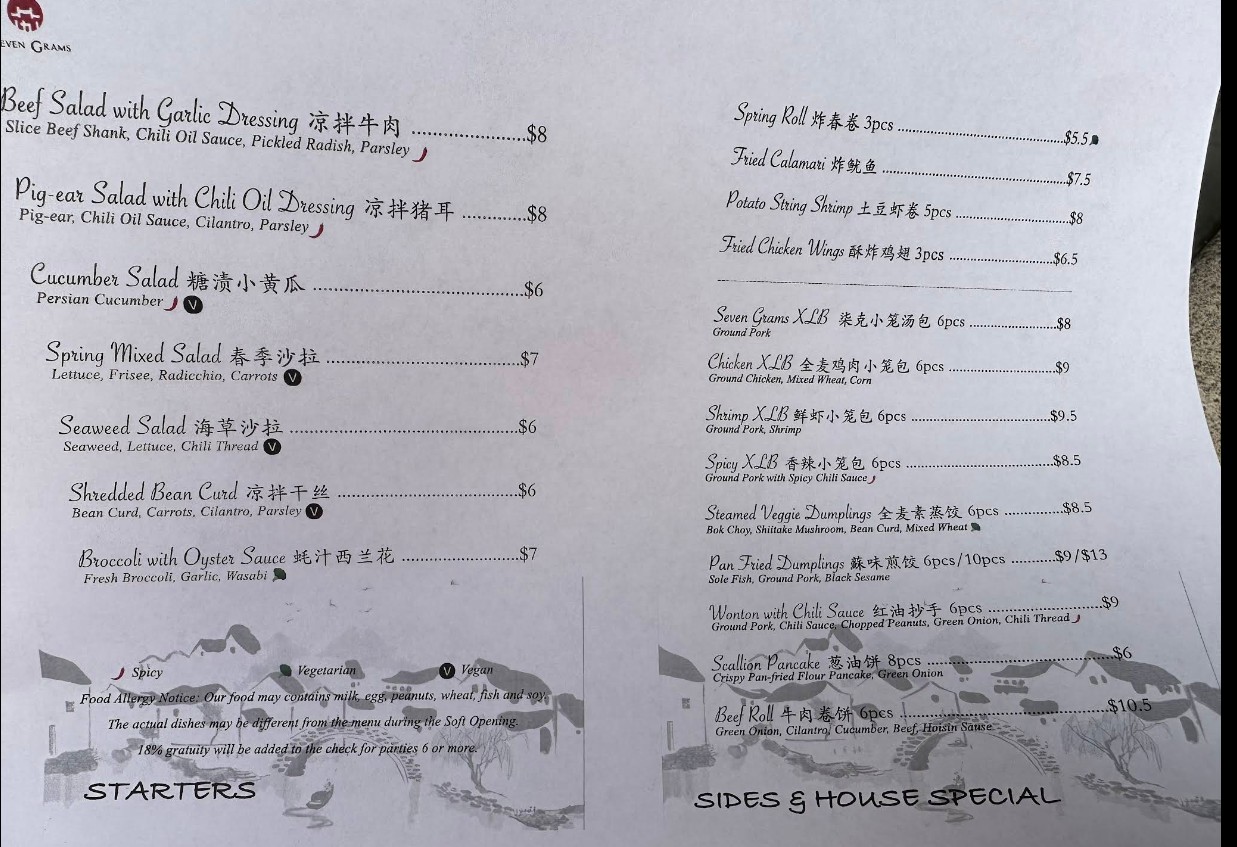 EVEN GRAMS
Beef Salad with Garlic Dressing 凉拌牛肉 ........................$8
Slice Beef Shank, Chili Oil Sauce, Pickled Radish, Parsley
Pig-ear Salad with Chili Oil Dressing 凉拌猪耳 ..............$8
Pig-ear, Chili Oil Sauce, Cilantro, Parsley
Cucumber Salad 糖渍小黄瓜 ..........................................$6
Persian Cucumber V
Spring Mixed Salad 春季沙拉 ..........................................$7
Lettuce, Frisee, Radicchio, Carrots V
Seaweed Salad 海草沙拉 ................................................$6
Seaweed, Lettuce, Chili Thread V
Shredded Bean Curd 凉拌干丝 ......................................$6
Bean Curd, Carrots, Cilantro, Parsley V
Broccoli with Oyster Sauce 蚝汁西兰花 ........................$7
Fresh Broccoli, Garlic, Wasabi
Spicy Vegetarian V Vegan
Food Allergy Notice: Our food may contains milk, egg, peanuts, wheat, fish and soy.
The actual dishes may be different from the menu during the Soft Opening.
18% gratuity will be added to the check for parties 6 or more.
STARTERS
Spring Roll 炸春卷 3pcs ..................................................$5.5
Fried Calamari 炸鱿鱼 ......................................................$7.5
Potato String Shrimp 土豆虾卷 5pcs ................................$8
Fried Chicken Wings 酥炸鸡翅 3pcs ..............................$6.5
Seven Grams XLB 柒克小笼汤包 6pcs .........................$8
Ground Pork
Chicken XLB 全麦鸡肉小笼包 6pcs ..............................$9
Ground Chicken, Mixed Wheat, Corn
Shrimp XLB 鲜虾小笼包 6pcs ......................................$9.5
Ground Pork, Shrimp
Spicy XLB 香辣小笼包 6pcs ..........................................$8.5
Ground Pork with Spicy Chili Sauce
Steamed Veggie Dumplings 全麦素蒸饺 6pcs .................$8.5
Bok Choy, Shiitake Mushroom, Bean Curd, Mixed Wheat
Pan Fried Dumplings 蘇味煎饺 6pcs/10pcs ...........$9/$13
Sole Fish, Ground Pork, Black Sesame
Wonton with Chili Sauce 红油抄手 6pcs ..........................$9
Ground Pork, Chili Sauce, Chopped Peanuts, Green Onion, Chili Thread
Scallion Pancake 葱油饼 8pcs .........................................$6
Crispy Pan-fried Flour Pancake, Green Onion
Beef Roll 牛肉卷饼 6pcs .............................................$10.5
Green Onion, Cilantro, Cucumber, Beef, Hoisin Sause
SIDES & HOUSE SPECIAL